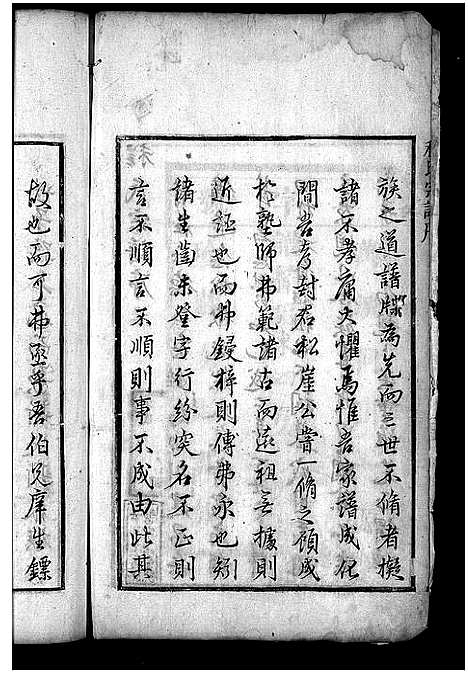 族之道譜牒為先而三世不脩者擬
諸不孝庸夫懼焉惟吾家譜成化
間吾考封君松崖公嘗一脩之顧成
於塾師弗範諸古而遠祖無據則
近誣也而弗鋟梓則傳弗永也矧
諸生齒未登字行紛突名不正則
言不順言不順則事不成由此其
故也而可弗亟乎吾伯兄庠生鏢